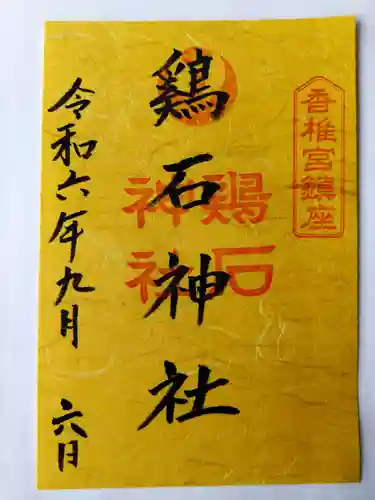 香椎宮鎮座
鶏石神社
鶏石
神社
令和六年九月 六日